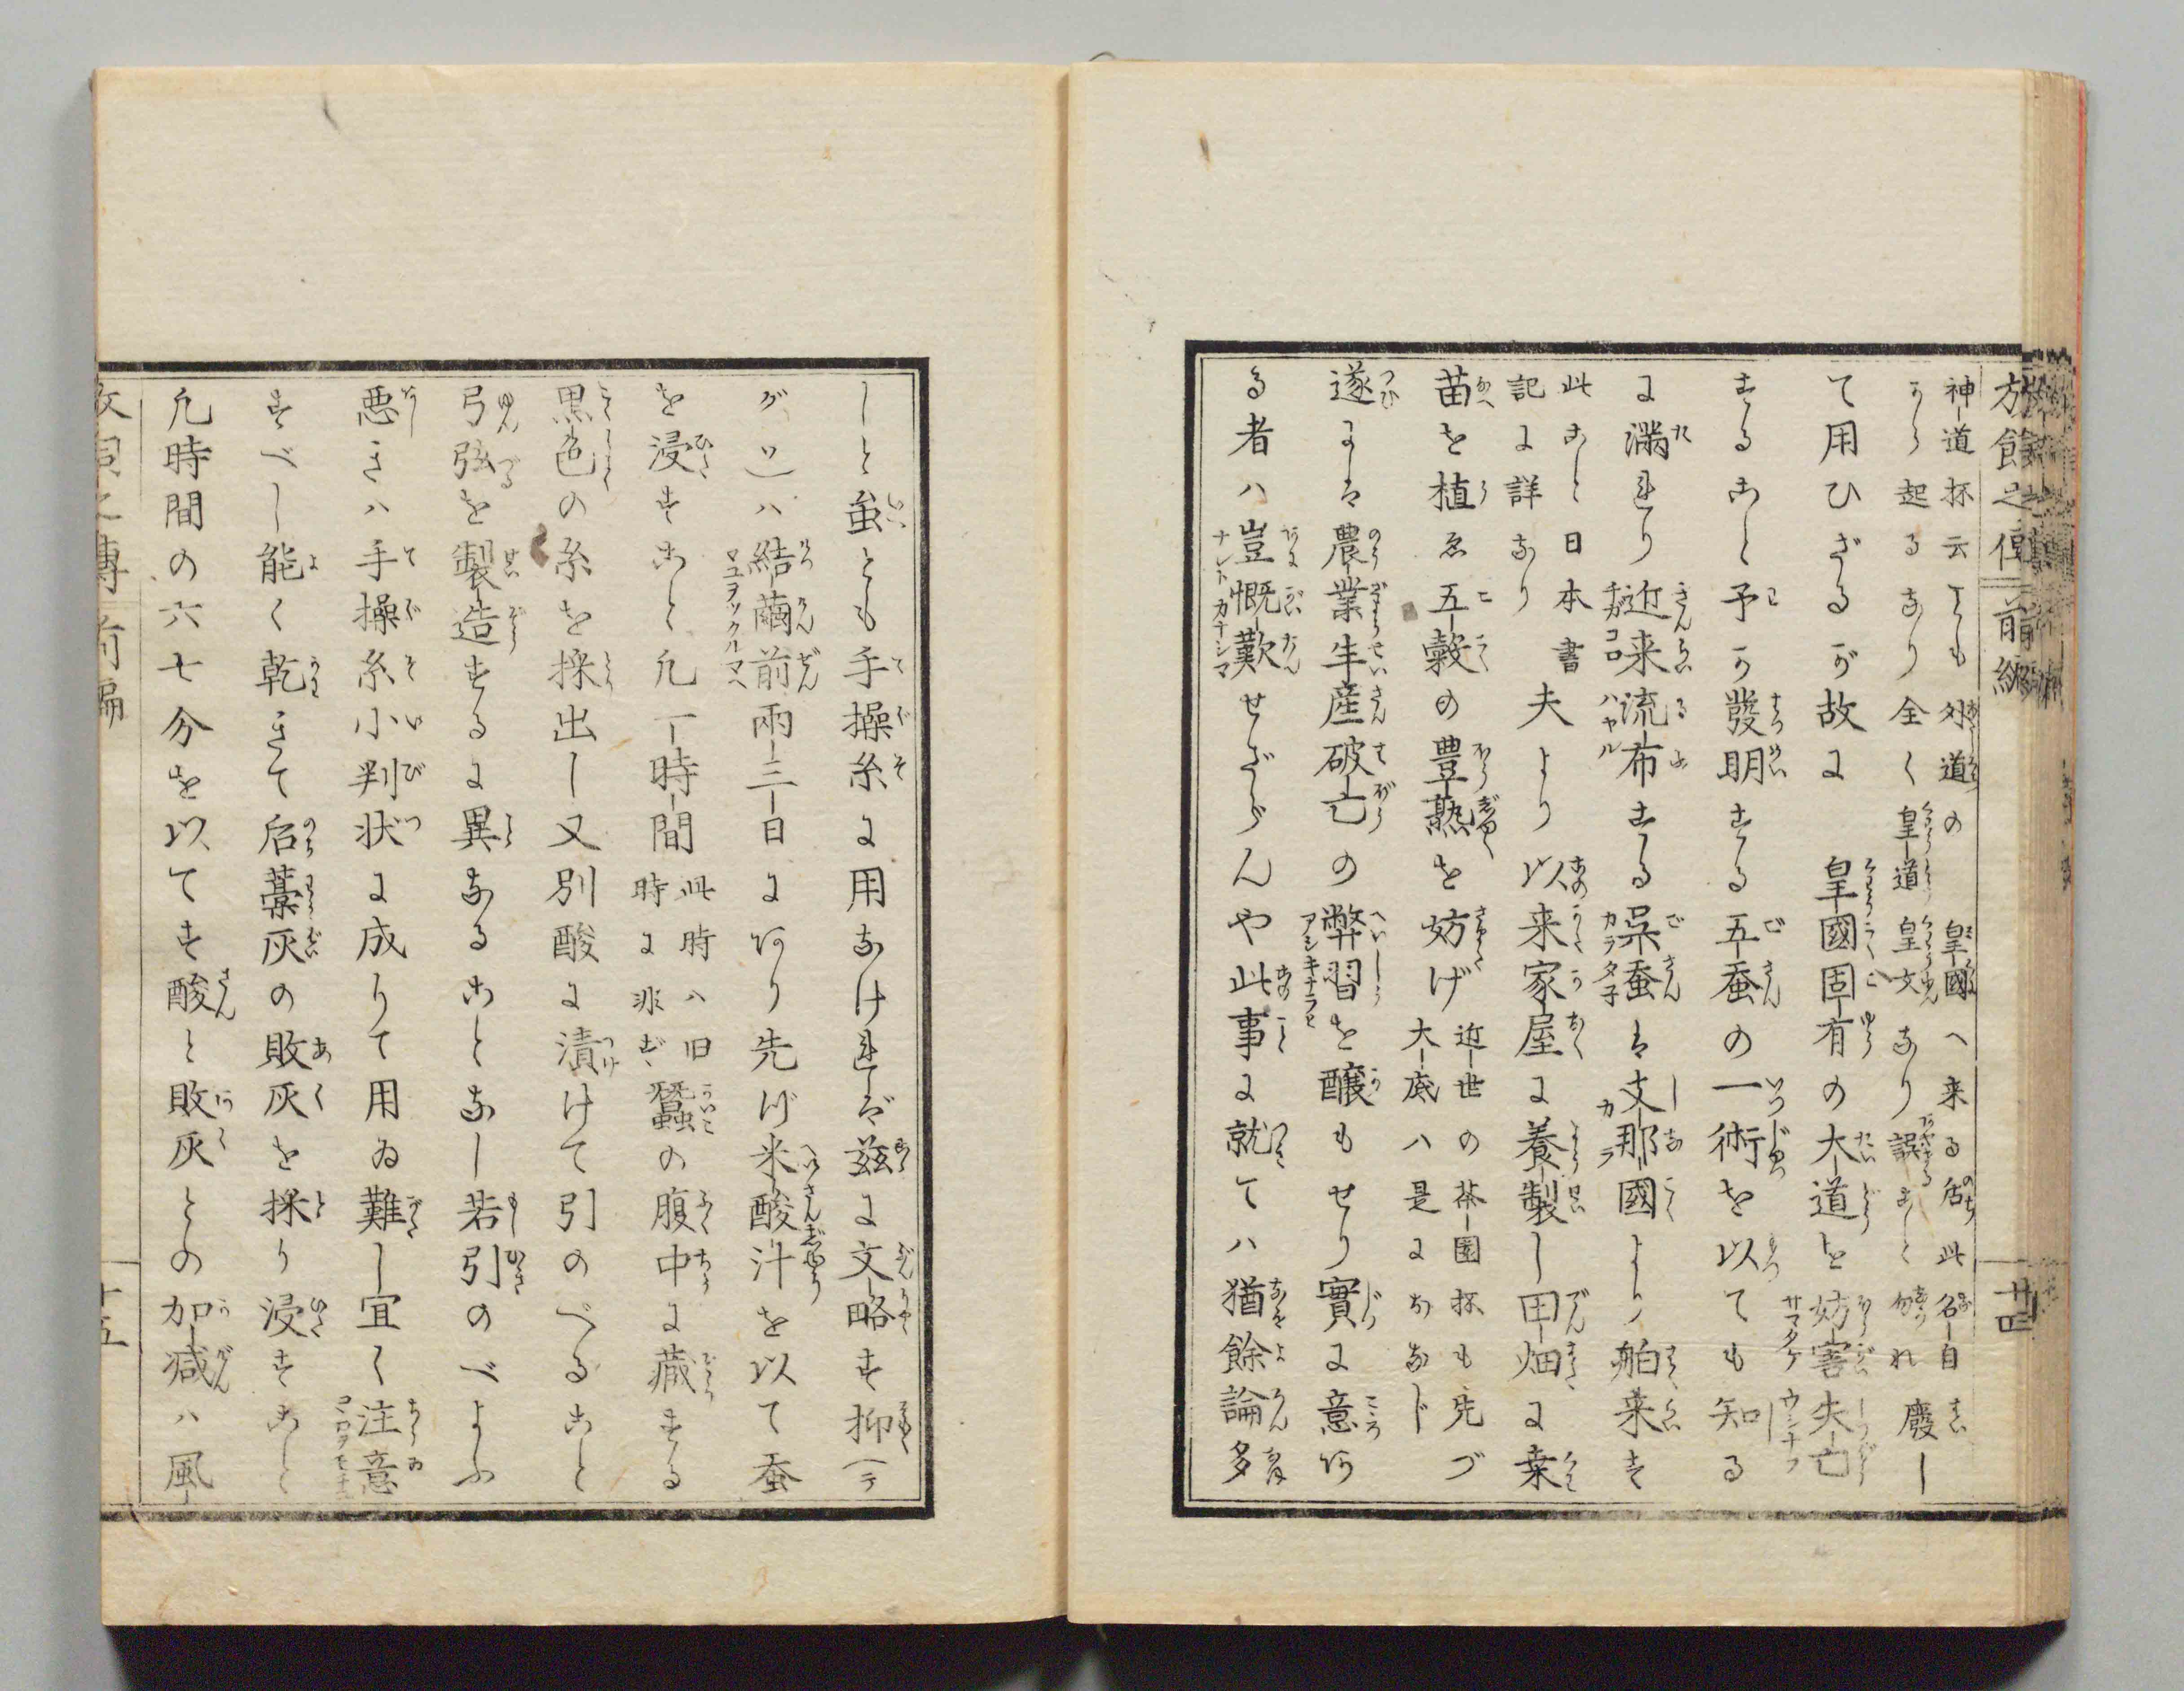 神道抔云とも外道の皇國へ来る后此名自
から起るなり全く皇道皇文なり誤ること勿れ
廢し
て用ひざるが故に　皇國固有の大道を妨害失亡
することを予が發明する五蚕の一術を以ても知る
に満れり近来流布する呉蚕は支那國より舶来す
此こと日本書
記に詳なり
夫より以来家屋に養製し田畑に桒
苗を植ゑ五穀の豊熟を妨げ
近世の茶園抔も先づ
大底ハ是におなじ
遂には農業生産破亡の弊習を醸もせり實に意あ
る者ハ豈慨歎せざらんや此事に就てハ猶餘論多
廿四
しと虽とも手操糸に用なければ茲に文略す抑(テ
グソ)ハ結繭前兩三日にあり先づ米酸汁を以て蚕
を浸すこと凢一時間
此時ハ旧
時に非ず
蠶の腹中に蔵する
黒色の糸を採出し又別酸に漬けて引のべること
弓弦を製造するに異なることなし若引のべよふ
悪きハ手操糸小判状に成りて用ゐ難し宜く注意
すべし能く乾きて后藁灰の敗灰を採り浸すこと
凢時間の六七分を以てす酸と敗灰との加減ハ風
十五